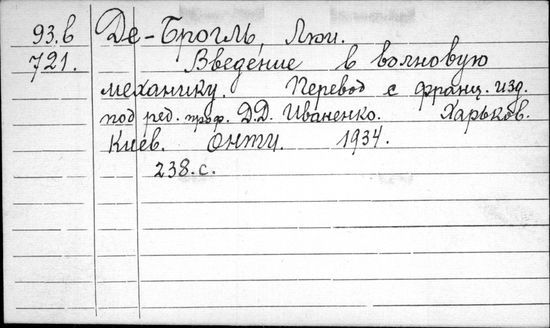 93.б Де-Брогль, Луи.
721. Введение в волновую
механику. Перевод с франц. изд.
под ред. проф. Д.Д. Иваненко. Харьков.
Киев. ОНТИ. 1934.
238.с.